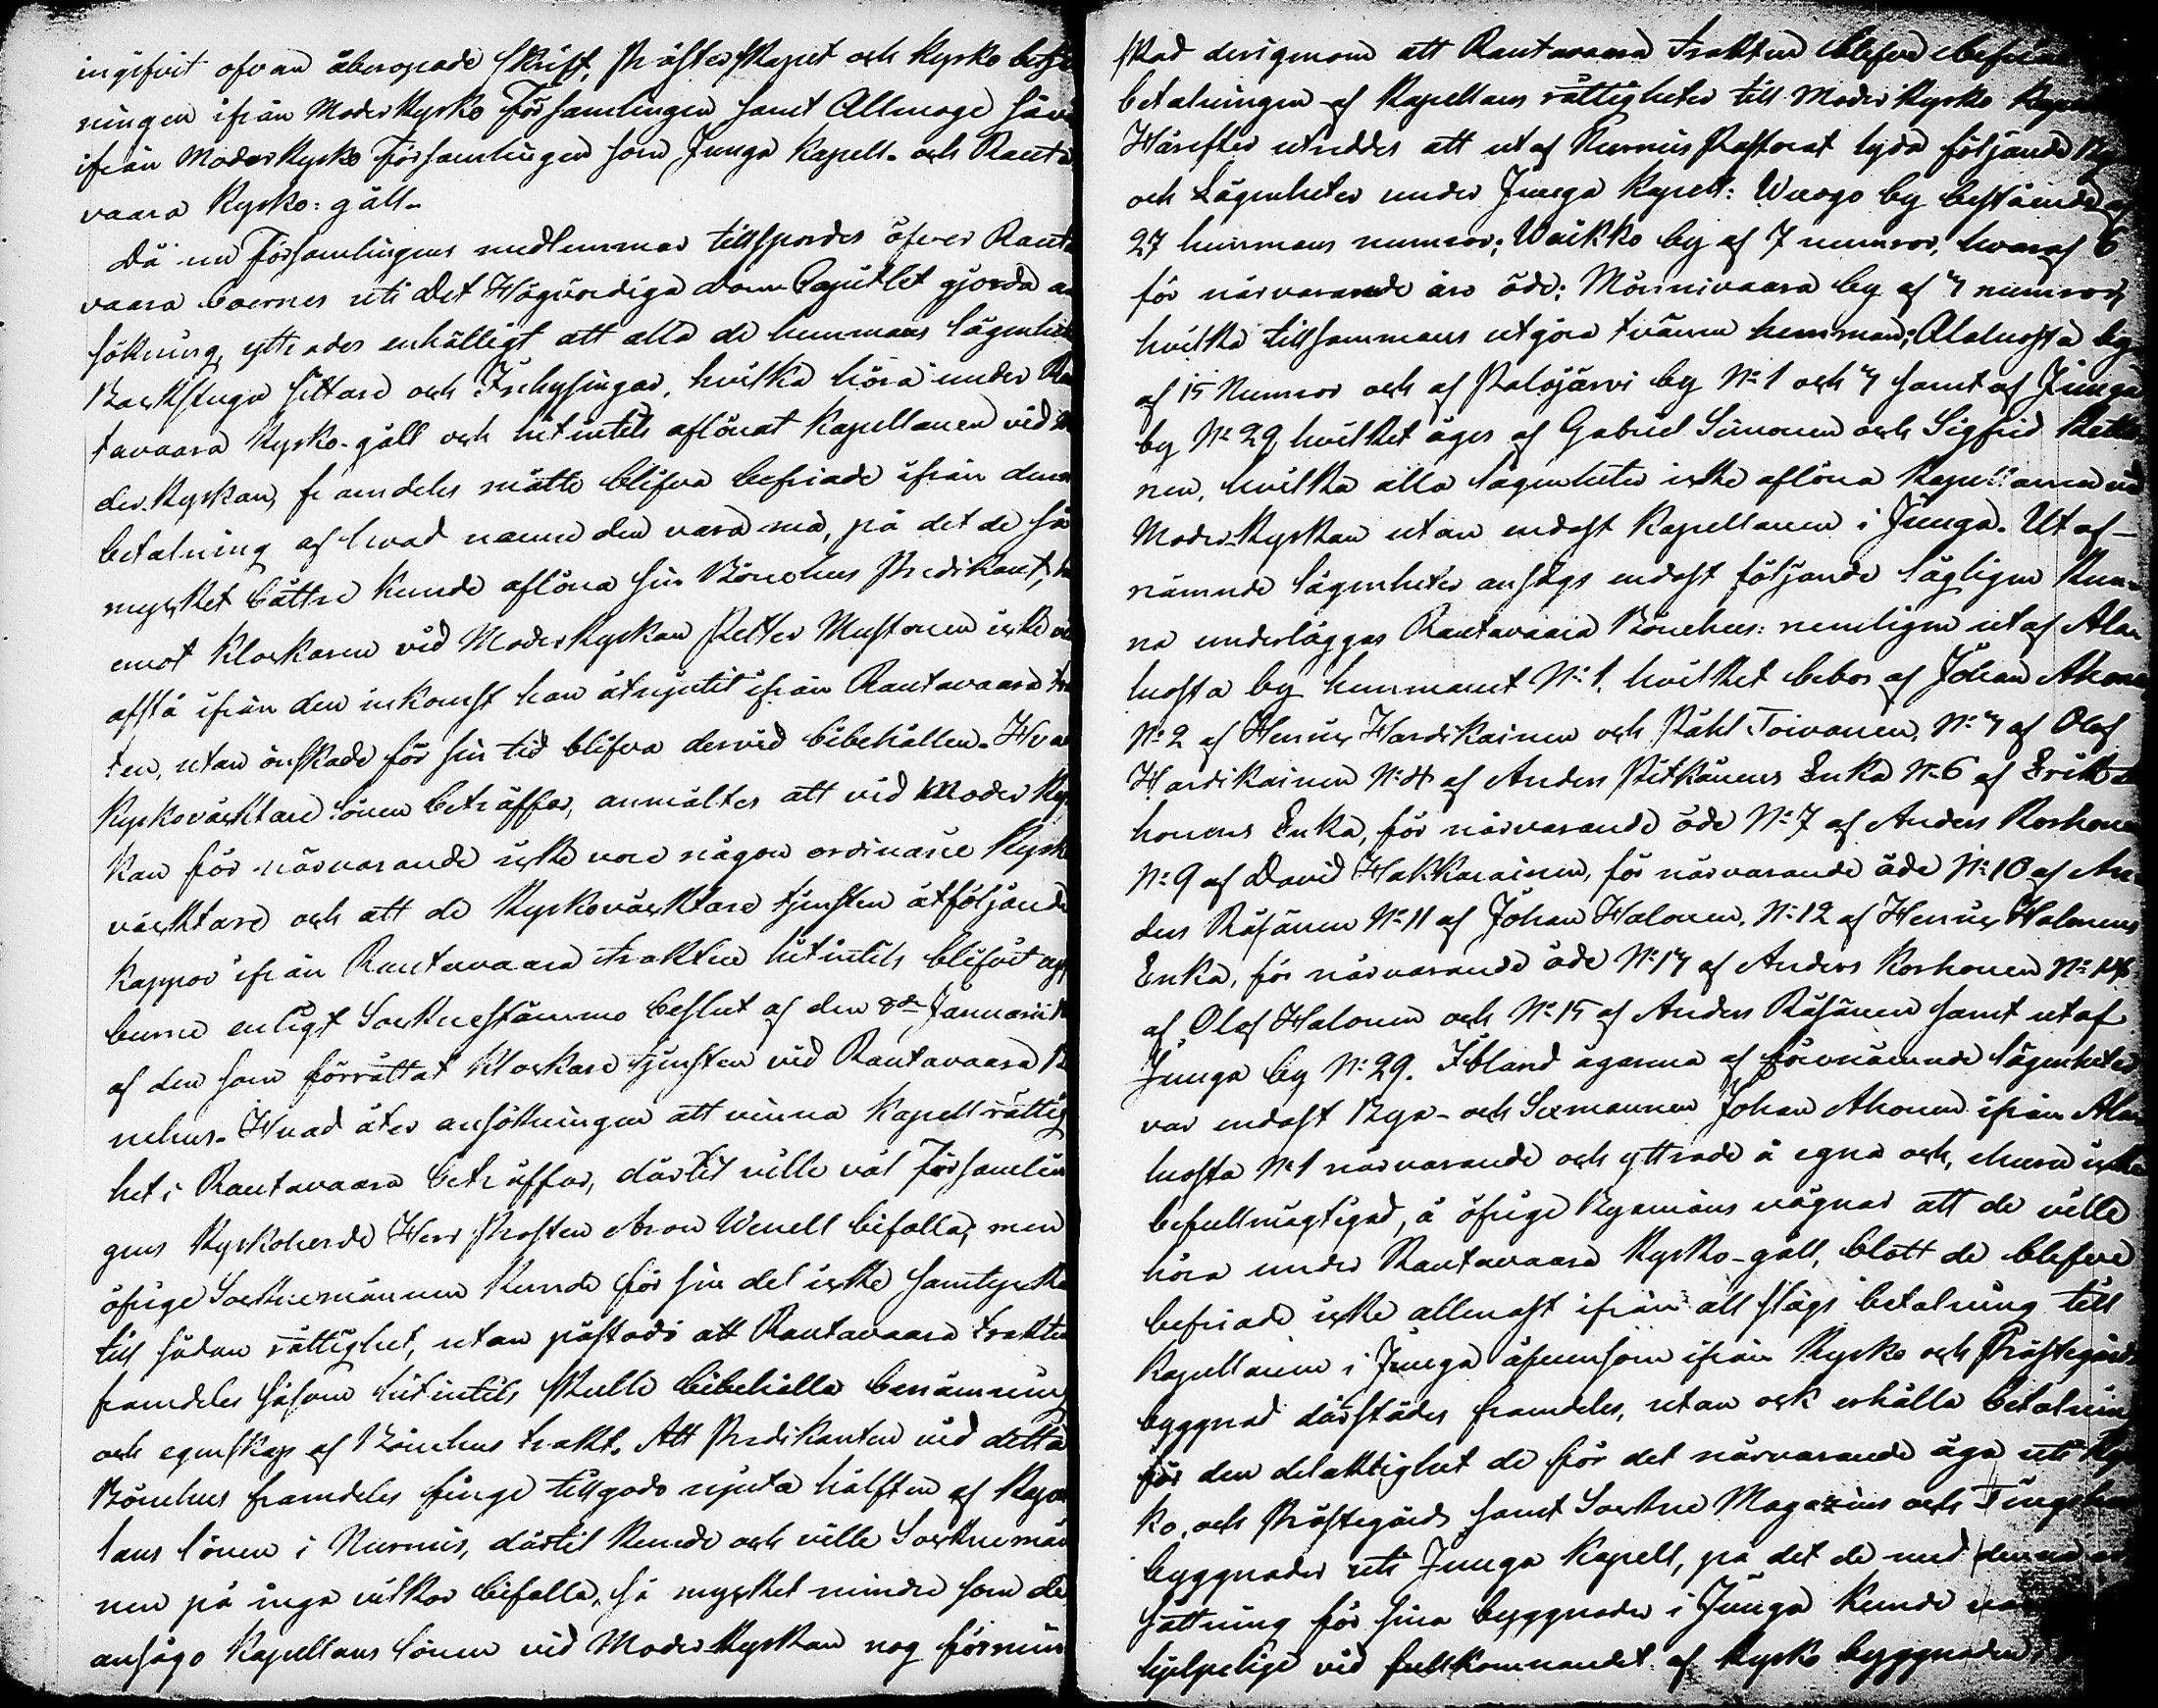 ingifvit ofvan åberopade skrift, Prästerskapet och Kyrko betje
ningen ifrån Moderkyrko Församlingen samt Allmoge såvä
ifrån Moderkyrko Församlingen som Juuga Kapell- och Rauta
vaara Kyrko-gäll.
Då nu Församlingens medlemmar tillspordes öfver Rauta
vaara boernes uti Det Högvördiga Dom Capitlet gjorda an
sökning, yttrades enhälligt att alla de hemmans lägenhet
Backstugu sittare och Inhysingar, hvilka höra under Rau
tavaara Kyrko-gäll och hitintils aflönat Kapellanen vid Mo
der-Kyrkan, framdeles måtte blifva befriade ifrån denna
betalning af hvad namn den vara må, på det de så
mycket bättre kunde aflöna sin Bönehus Predikant, der
emot Klockaren vid Moderkyrkan Petter Mustonen icke vil
afstå ifrån den inkomst han åtnjutit ifrån Rautavaara trak
ten, utan önskade för sin tid blifva dervid bibehållen. Hvad
Kyrkoväcktare lönen beträffar, anmältes att vid Moder Kyr
kan för närvarande icke vore någon ordinarie Kyrko
väcktare och att de Kyrkoväcktare tjensten åtföljande
Kappor ifrån Rautavaara trakten hitintils blifvit upp
burne enligt Sockenestämmo beslut af den 8de Januarii
af den som förrättat Klockare tjensten vid Rautavaara Bö
nehus. Hvad åter ansökningen att vinna Kapell rättig
het i Rautavaara beträffar, därtil ville väl Församlin
gens Kyrkoherde Herr Prosten Aron Wenell bifalla; men
öfrige Sockenemännen kunde för sin del icke samtycka
till sådan rättighet, utan påstodo att Rautavaara trakten
framdeles såsom hitintils skulle bibehålla benämning
och egenskap af Bönehus trakt. Att Predikanten vid detta
Bönehus framdeles finge tillgodo njuta hälften af Kapel
lans lönen i Nurmis, därtil kunde och ville Sockenemän
nen på inga vilkor bifalla, så mycket mindre som de
ansågo Kapellans lönen vid Moder-Kyrkan nog förmin
skad derigenom att Rautavaara trakten blefve befriad
betalningen af Kapellans rättigheter till Moder Kyrko
Härefter utreddes att utaf Nurmis Pastorat lyda följande By
och Lägenheter under Juuga Kapell: Wuogo by bestående af
27 hemmans numror; Waikko by af 7 numror, hvaraf 6
för närvarande äro öde; Mörinivaara by af 3 numror,
hvilka tillsammans utgöra tvänne hemman; Alaluosta by
af 15 Numror och af Palojärvi by No 1 och 3 samt af Juuga
by No 29 hvilket äges af Gabriel Simonen och Sigfrid Kette
nen, hvilka alla lägenheter icke aflöna Kapellanen vid
Moder-Kyrkan utan endast Kapellanen i Juuga. Ut af
nämnde lägenheter ansågs endast följande lägligen kun
na underläggas Rautavaara Bönehus: nemligen utaf Ala
luosta by hemmanet No 1. hvilket bebos af Johan Ahonen
No 2 af Henric Hardikainen och Påhl Toivanen, No 3 af Olof
Hardikainen No 4 af Anders Pitkänens Enka No 6 af Erik
honens Enka, för närvarande öde No 7 af Anders Korhonen
No 9 af David Hakkarainen, för närvarande öde No 10 af An
ders Räsänen No 11 af Johan Halonen, No 12 af Henric Halonens
Enka, för närvarande öde No 13 af Anders Korhonen No 14
af Olof Halonen och No 15 af Anders Räsänen samt utaf
Juuga by No 29. Ibland ägarna af förenämnde lägenheter
var endast Bya- och Sexmannen Johan Ahonen ifrån Ala
luosta No 1 närvarande och yttrade å egna och, ehuru icke
befullmägtigad, å öfrige Byamäns vägnar att de ville
höra under Rautavaara Kyrko-gäll, blott de blefve
befriade icke allenast ifrån all slags betalning till
Kapellanen i Juuga äfvensom ifrån Kyrko och Prästegårds
byggnad därstädes framdeles, utan ock erhålla betalning
för den delaktighet de för det närvarande äga uti Kyr
ko, och Prästegårds samt Sockne Magazins och Tingshus
byggnader uti Juuga Kapell, på det de med denna er
sättning för sina byggnader i Juuga kunde vara
hjelpelige vid fullkomnandet af Kyrko byggnaden